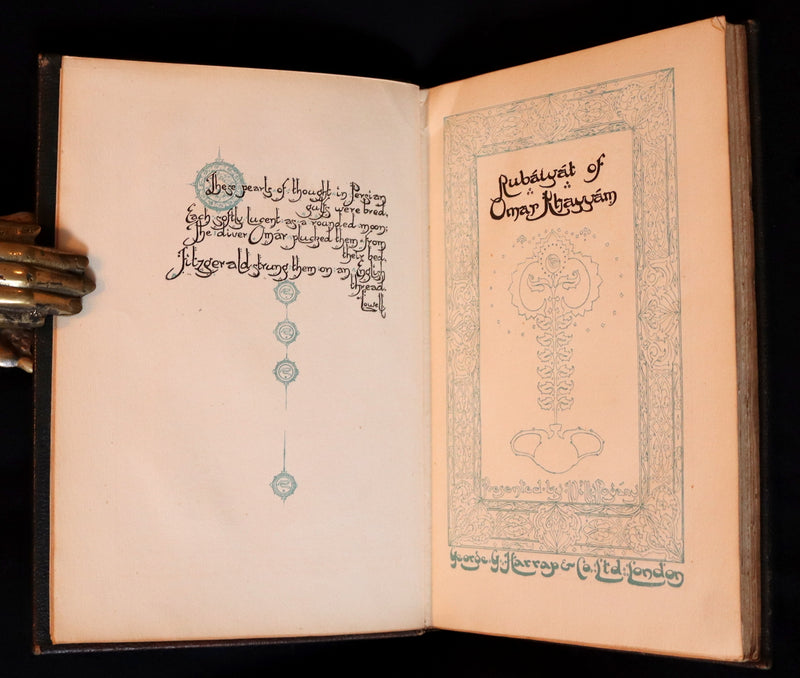 These pearls of thought in Persian
gulfs were bred,
Each softly lucent as a rounded moon;
The diver Omar plucked them from
their bed,
Fitzgerald strung them on an English
thread.
Lowell
Rubáiyát of
Omar Khayyám
Presented by Willy Pogány
George G. Harrap & Co. Ltd. London